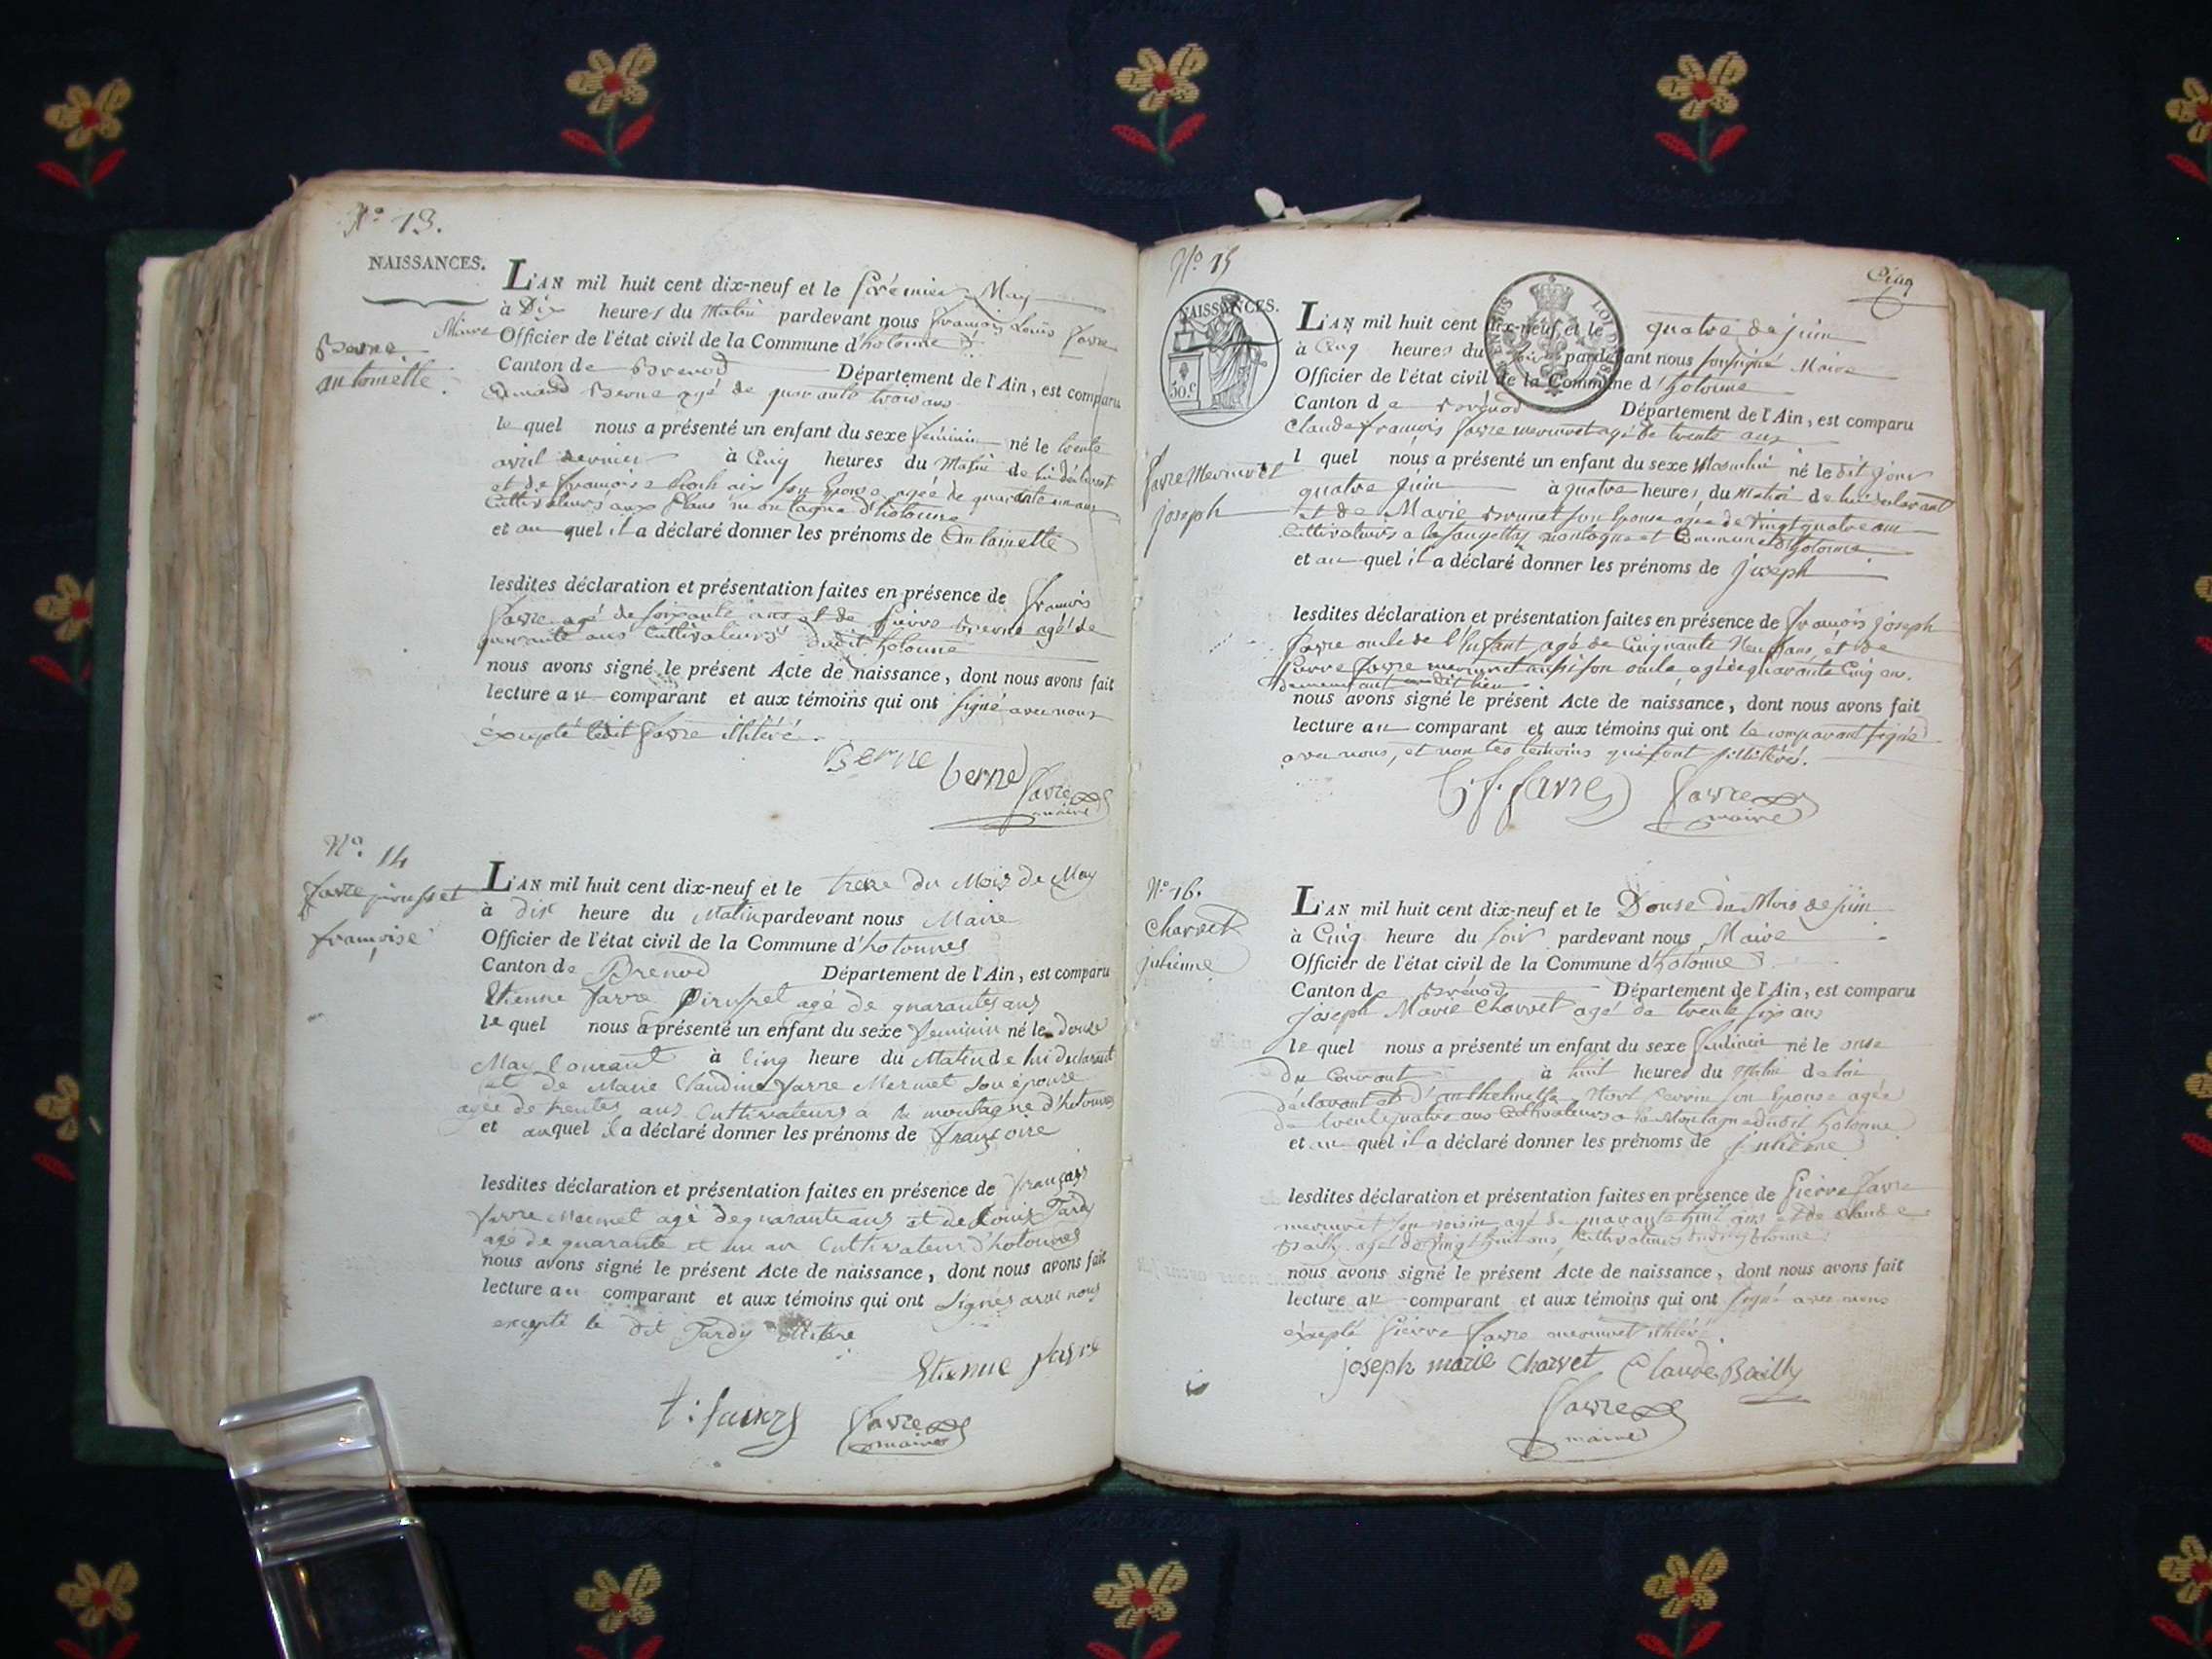 N.º 13.
NAISSANCES.
Berne
antoinette.
L'AN mil huit cent dix-neuf et le premier May
à Dix heures du Matin pardevant nous françois Louis favre
Maire Officier de l'état civil de la Commune d'hotonne
Canton de Brenod Département de l'Ain, est comparu
Berne agé de quarante trois ans
le quel nous a présenté un enfant du sexe féminin né le trente
avril dernier à Cinq heures du Matin de lui déclarant
et de françoise son Epouse agée de quarante un ans
Cultivateurs aux plans montagne d'hotonne
et auquel il a déclaré donner les prénoms de Antoinette
lesdites déclaration et présentation faites en présence de françois
favre agé de soixante ans et de pierre Berne agé de
quarante ans Cultivateurs dudit hotonne
nous avons signé le présent Acte de naissance, dont nous avons fait
lecture au comparant et aux témoins qui ont signé avec nous
éxcepté ledit favre illitéré.
Berne berne
favre
maire
N.º 14
favre pirusset
françoise
L'AN mil huit cent dix-neuf et le treze du Mois de May
à dix heure du Matin pardevant nous Maire
Officier de l'état civil de la Commune d'hotonnes
Canton de Brenod Département de l'Ain, est comparu
Etienne favre agé de quarantes ans
le quel nous a présenté un enfant du sexe feminin né le douze
May Courant à Cinq heure du Matin de lui declarant
et de Marie Claudine favre Mermet son épouse
agée de trentes ans Cultivateurs a la montagne d'hotonnes
et auquel il a déclaré donner les prénoms de françoise
lesdites déclaration et présentation faites en présence de françois
favre Mermet agé de quarante ans et de Louis Tardy
agé de quarante et un an Cultivateur d'hotonnes
nous avons signé le présent Acte de naissance, dont nous avons fait
lecture au comparant et aux témoins qui ont signés avec nous
excepté le dit Tardy
Etienne favre
favre
maire
N.º 15
Cinq
NAISSANCES.
50.c
favre Mermet
joseph
L'AN mil huit cent dix-neuf et le quatre de juin
à Cinq heures du soir pardevant nous soussigné Maire
Officier de l'état civil de la Commune d'hotonne
Canton de Brénod Département de l'Ain, est comparu
Claude françois favre mermet agé de trente ans
l quel nous a présenté un enfant du sexe Masculin né le dit jour
quatre juin à quatre heures du Matin de lui déclarant
et de Marie Brunet son Epouse agée de vingt quatre ans
Cultivateurs a la montagne et Commune d'hotonne
et auquel il a déclaré donner les prénoms de joseph
lesdites déclaration et présentation faites en présence de françois joseph
favre oncle de l'Enfant, agé de Cinquante Neuf ans, et de
pierre favre mermet aussi son oncle agé de quarante Cinq ans.
demeurant audit lieu
nous avons signé le présent Acte de naissance, dont nous avons fait
lecture au comparant et aux témoins qui ont le comparant signé
avec nous, et non les témoins qui sont illitérés.
C. f. favre favre
maire
N.º 16.
Charvet
julienne
L'AN mil huit cent dix-neuf et le Douse du Mois de juin
à Cinq heure du soir pardevant nous Maire
Officier de l'état civil de la Commune d'hotonne
Canton d Brénod Département de l'Ain, est comparu
joseph Marie Charvet agé de trente six ans
le quel nous a présenté un enfant du sexe féminin né le onse
du Courant à huit heures du Matin de lui
déclarant et d'anthelmette perrin son Epouse agée
de trente quatre ans Cultivateurs a la Montagne dudit hotonne
et au quel il a déclaré donner les prénoms de julienne
lesdites déclaration et présentation faites en présence de pierre favre
mermet son voisin agé de quarante huit ans et de claude
Bailly agé de vingt huit ans, Cultivateurs dudit hotonne
nous avons signé le présent Acte de naissance, dont nous avons fait
lecture au comparant et aux témoins qui ont signé avec nous
éxcepté pierre favre mermet illitéré.
joseph marie Charvet Claude Bailly
favre
maire